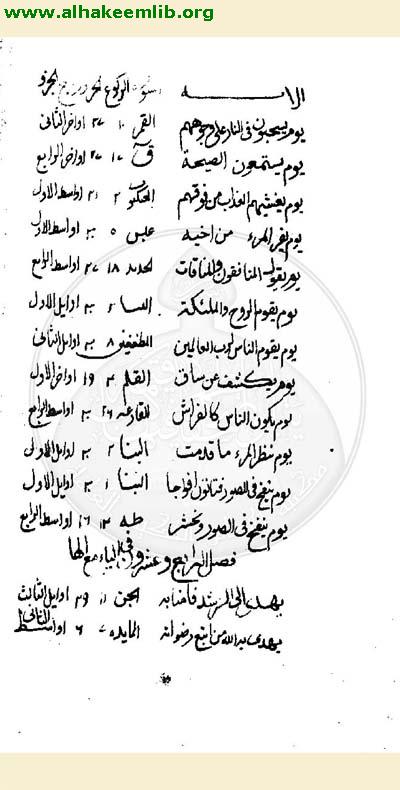 www.alhakeemlib.org
الايه سورة الركوع الجزو
يوم يسحبون فى النار على وجوههم القمر ١٠ ٢٧ اواخر الثانى
يوم يستمعون الصيحة ق ١٧ ٢٧ اواخر الرابع
يوم يغشيهم العذاب من فوقهم العنكبوت ٢ ٢١ اواسط الاول
يوم يفر المرء من اخيه عبس ٥ ٣٠ اواسط الاول
يوم يقول المنافقون والمنافقات الحديد ١٨ ٢٧ اواسط الرابع
يوم يقوم الروح والملئكة النبا ٢ ٣٠ اوايل الاول
يوم يقوم الناس لرب العالمين المطففين ٨ ٣٠ اوايل الثانى
يوم يكشف عن ساق القلم ٤ ٢٩ اواخر الاول
يوم يكون الناس كالفراش القارعه ٢٦ ٣٠ اواسط الرابع
يوم ينظر المرء ما قدمت النبا ٢ ٣٠ اوايل الاول
يوم ينفخ فى الصور فتاتون افواجا النبا ١ ٣٠ اوايل الاول
يوم ينفخ فى الصور ونحشر طه ١٤ ١٦ اواسط الرابع
فصل الرابع وعشرون فى الياء مع الها
يهدى الى الرشد فامنا به الجن ١١ ٢٩ اوايل الثالث
يهدى به الله من اتبع رضوانه المايده ٧ ٦ اواسط الثانى